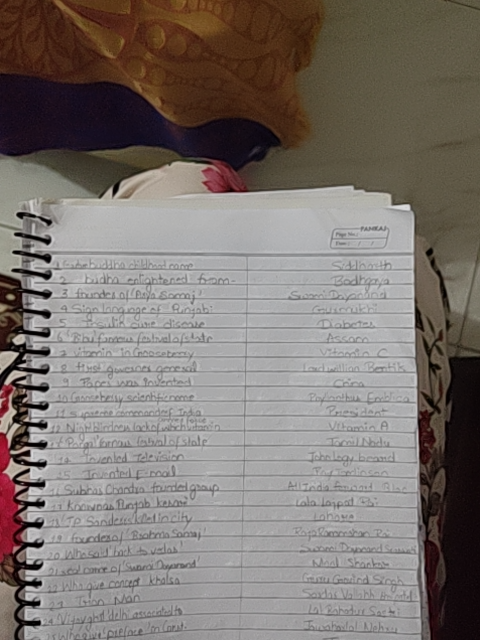 PANKAJ
Page No.:
Date: / /
1 budha childhood name Siddharth
2 budha enlightened from- Bodhgaya
3 founder of 'Arya Samaj' Swami Dayanand
4 Sign language of Punjabi Gurumukhi
5 Insulin cure disease Diabetes
6 'Bihu' famous festival of state Assam
7 vitamin in Gooseberry Vitamin C
8 first governer general Lord willion Bentik
9 Paper was Invented China
10 Gooseberry scientific name Phylanthus Emblica
11 supreme commander of India armed force President
12 Night blindness lack of which vitamin Vitamin A
13 'Pongal' famous festival of state Tamil Nadu
14 Invented Television John logy beard
15 Invented E-mail Ray Tomlinson
16 Subhas Chandra founded group All India forward Bloc
17 Known as Punjab kesari Lala lajpat Rai
18 'JP Sanders' killed In city Lahore
19 founder of 'Brahmo Samaj' Raja Rammohan Rai
20 Who said 'back to vedas' Swami Dayanand
21 real name of 'Swami Dayanand' Mool Shankar
22 Who give concept khalsa Guru Govind Singh
23 Iron Man Sardar Vallabh
24 'Vijay ghat' delhi associated to Lal Bahadur Sastri
25 Who give 'preface' in Const. Jawaharlal Nehru